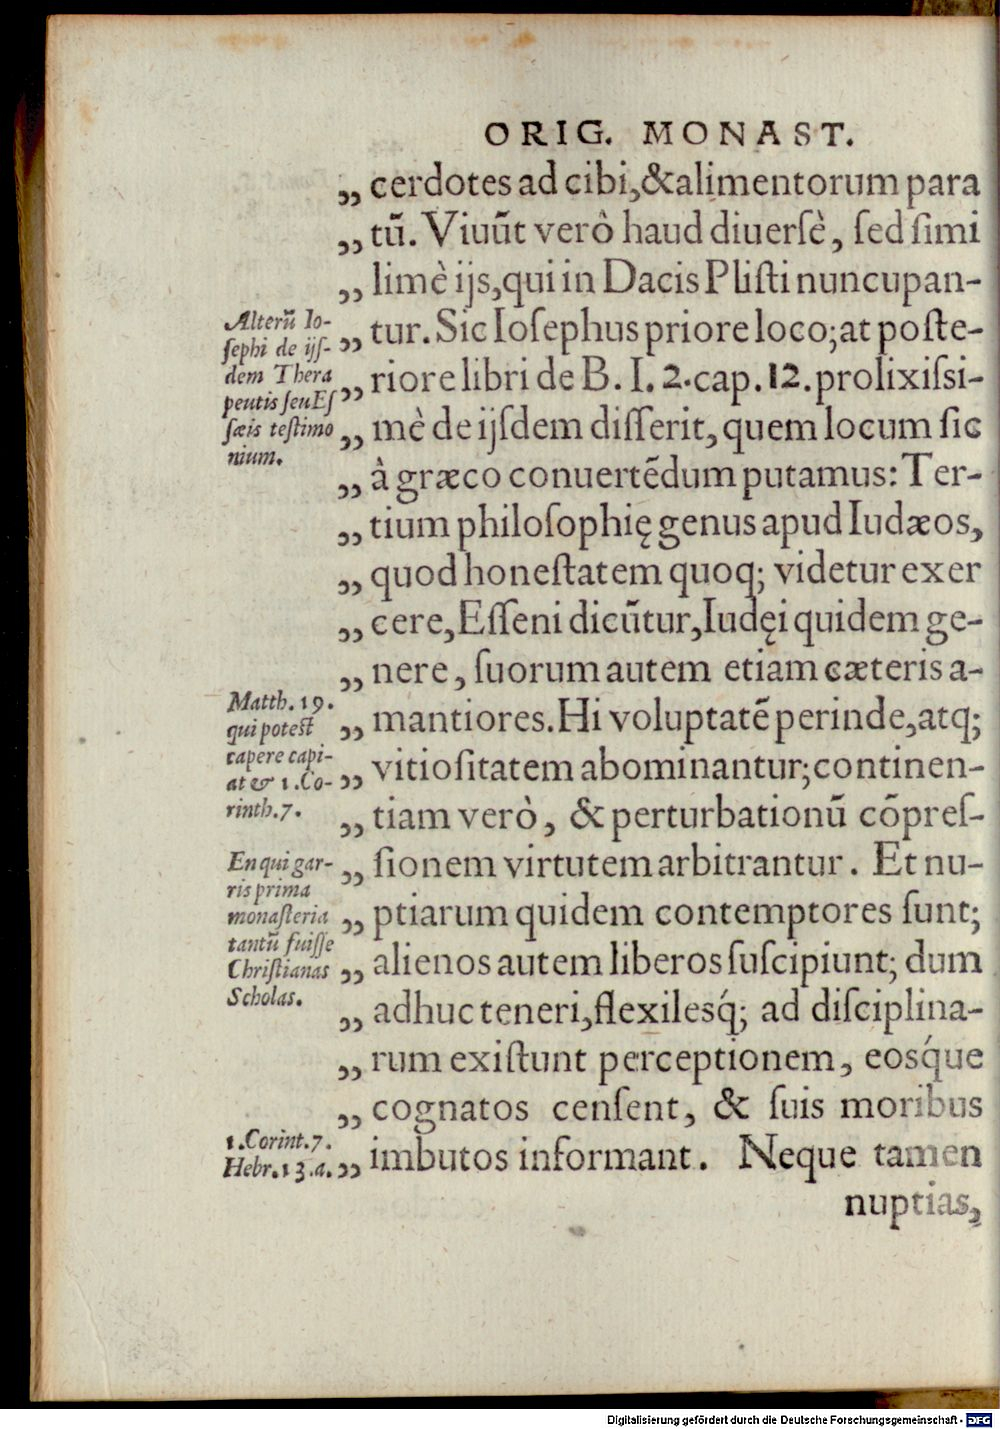 ORIG. MONAST.
„ cerdotes ad cibi, & alimentorum para
„ tū. Viuūt verò haud diuerſè, ſed ſimi
„ limè ijs, qui in Dacis Pliſti nuncupan-
„ tur. Sic Ioſephus priore loco; at poſte-
„ riore libri de B. I. 2. cap. 12. prolixiſsi-
„ mè de ijſdem diſſerit, quem locum ſic
„ à græco conuertēdum putamus: Ter-
„ tium philoſophię genus apud Iudæos,
„ quod honeſtatem quoq; videtur exer
„ cere, Eſſeni dicūtur, Iudęi quidem ge-
„ nere, ſuorum autem etiam cæteris a-
„ mantiores. Hi voluptatē perinde, atq;
„ vitioſitatem abominantur; continen-
„ tiam verò, & perturbationū cōpreſ-
„ ſionem virtutem arbitrantur. Et nu-
„ ptiarum quidem contemptores ſunt;
„ alienos autem liberos ſuſcipiunt; dum
„ adhuc teneri, flexilesq́; ad diſciplina-
„ rum exiſtunt perceptionem, eosq́ue
„ cognatos cenſent, & ſuis moribus
„ imbutos informant. Neque tamen
nuptias,
Alterū Io-
ſephi de ijſ-
dem Thera
peutis ſeu Eſ
ſæis teſtimo
nium.
Matth. 19.
qui poteſt
capere capi-
at & 1. Co-
rinth. 7.
En qui gar-
ris prima
monaſteria
tantū fuiſſe
Chriſtianas
Scholas.
1. Corint. 7.
Hebr. 13. a.
Digitalisierung gefördert durch die Deutsche Forschungsgemeinschaft - DFG